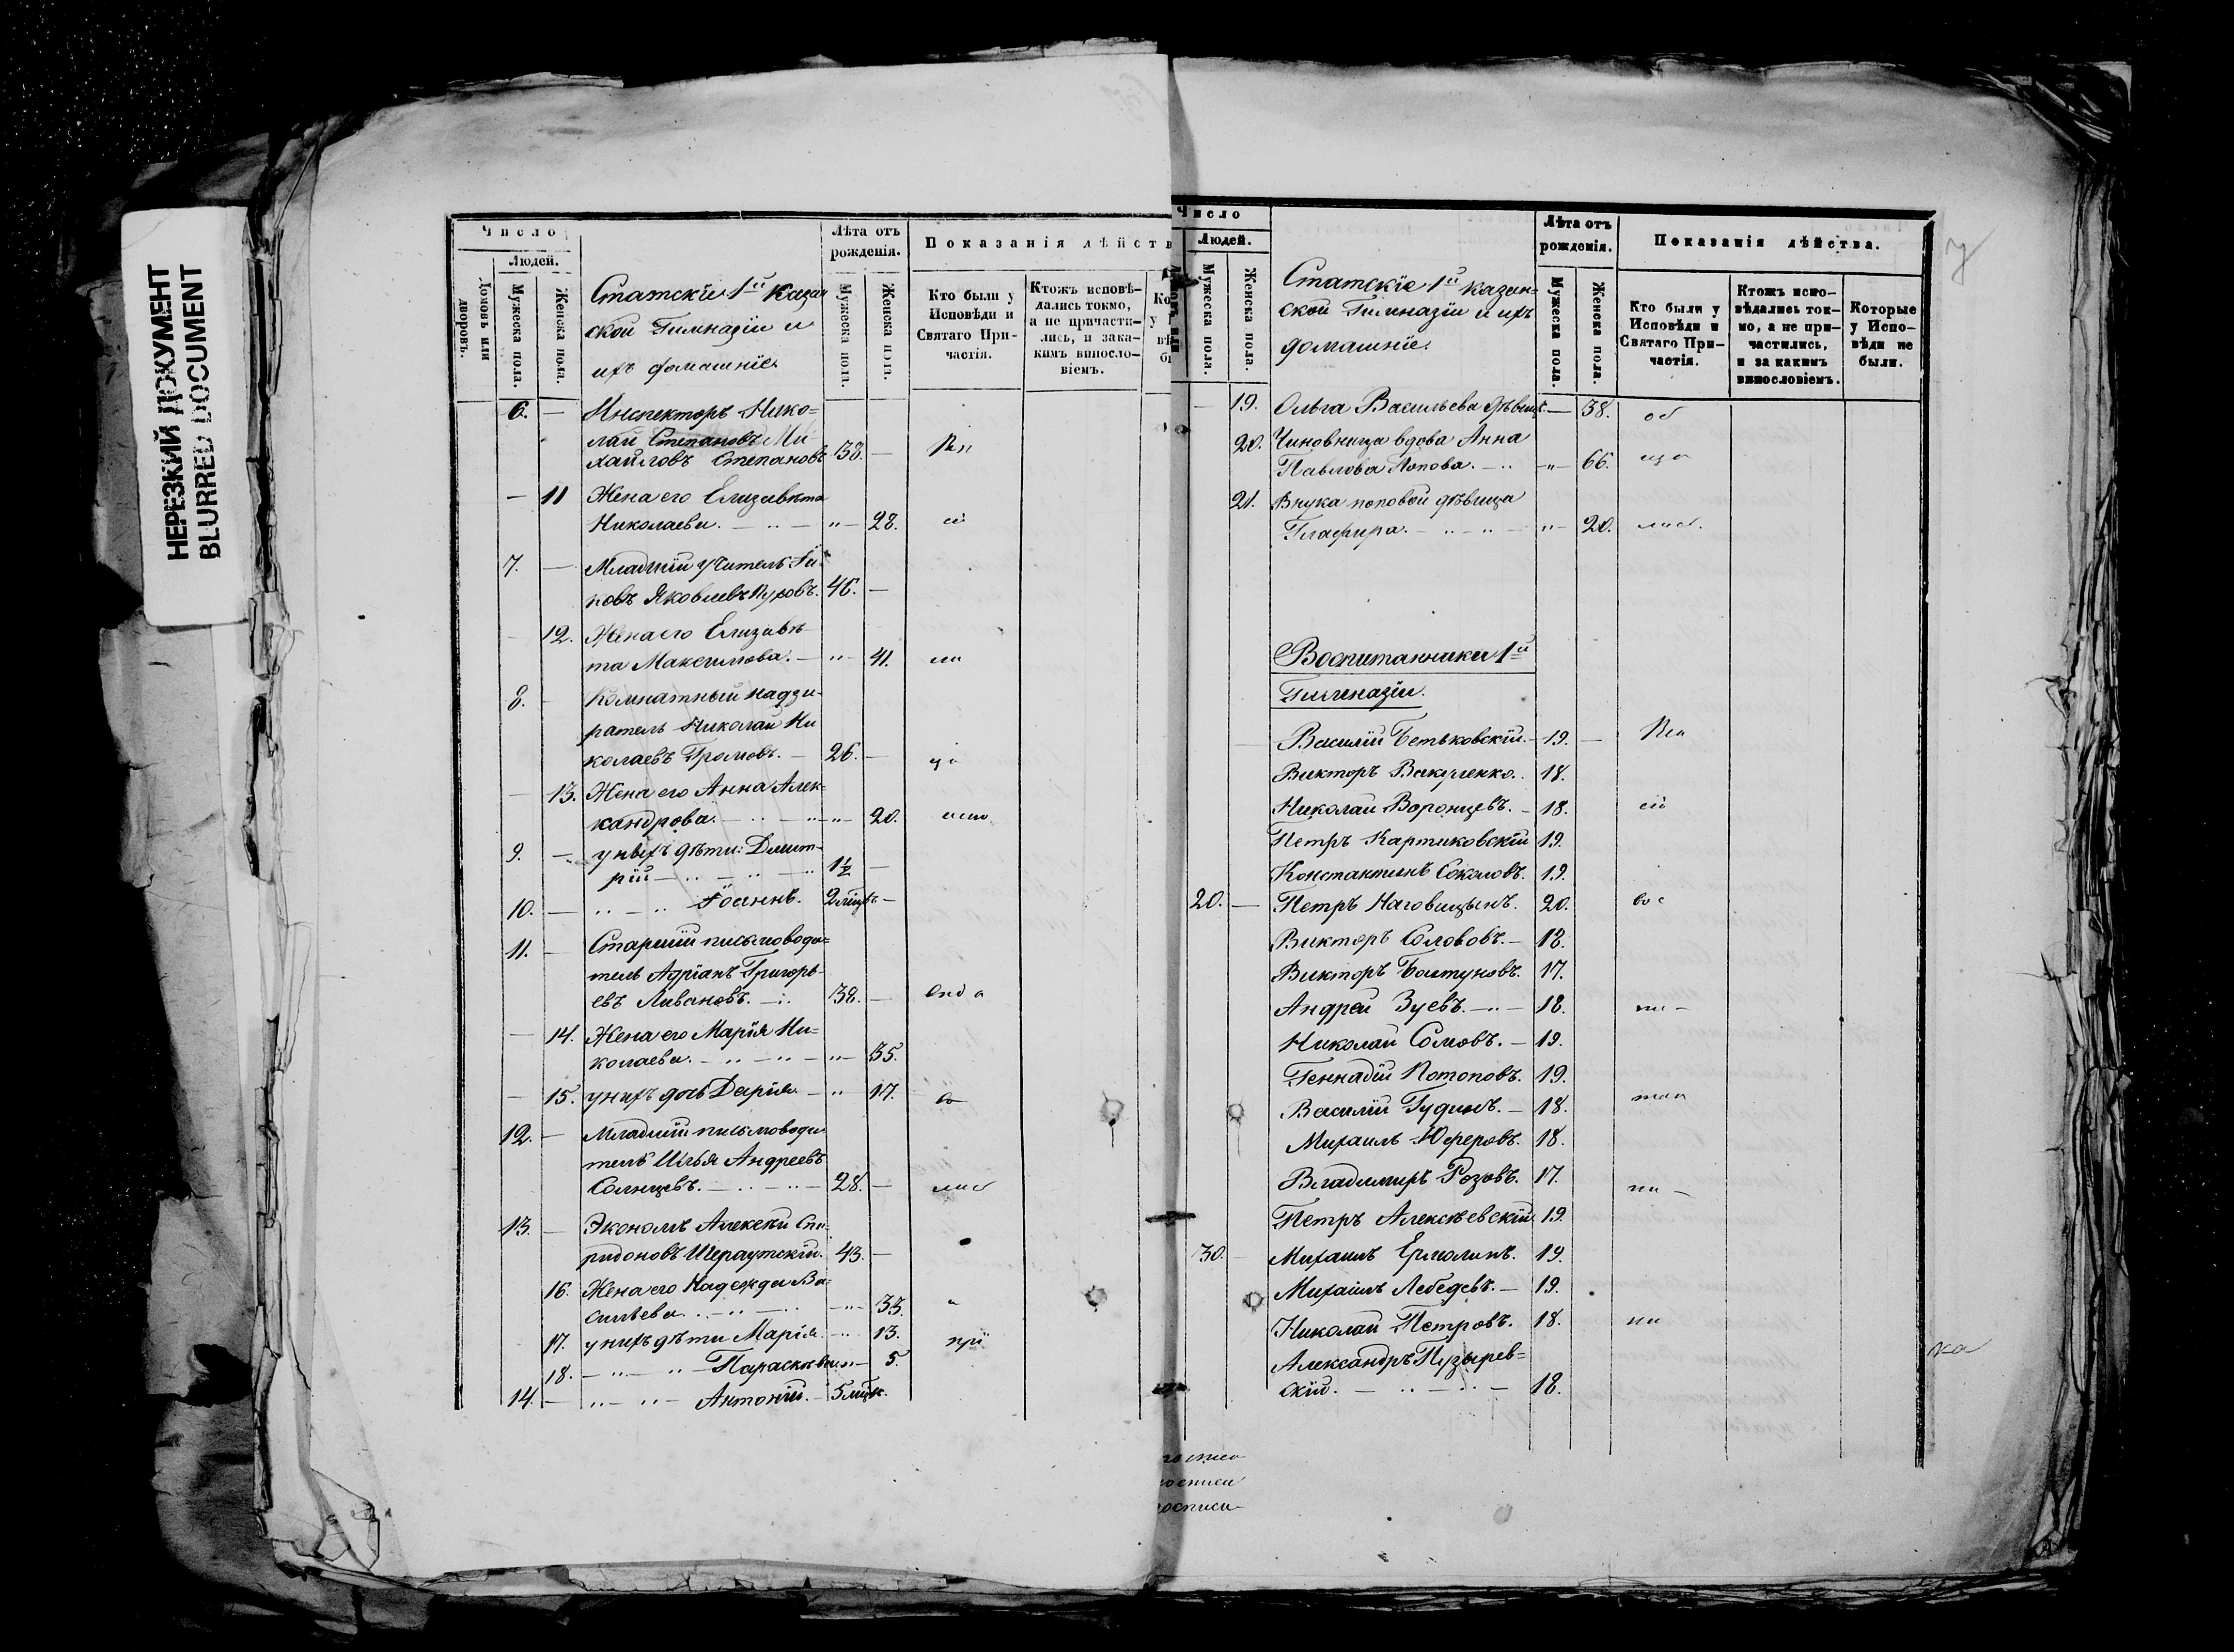 НЕРЕЗКИЙ ДОКУМЕНТ
BLURRED DOCUMENT
Число
Людей.
Домовъ или дворовъ.
Мужеска пола.
Женска пола.
Статскіе 1й Казан
ской Гимназіи и
ихъ домашніе
Лѣта отъ рожденія.
Мужеска пола.
Женска пола.
Показанія дѣйств
Кто были у Исповѣди и Святаго Причастія.
Ктожъ исповѣ-
дались токмо,
а не причасти-
лись, и зака-
кимъ винosло-
віемъ.
6. — Инспекторъ Нико=
лай Степановъ Ми
хайловъ Степановъ 38. —
— 11 Жена его Елизавета
Николаева. — „ — 28.
7. — Младшій учитель
Яковлевъ 46. —
12. Жена его Елизаве
та Максимова. — „ — 41.
8. — Комнатный надзи-
ратель Николай Ни
колаевъ Громовъ. — 26. —
— 13. Жена его Анна Алек=
сандрова. — „ — 20.
9. — у нихъ дѣти: Димит-
рій — 1½ —
10. — „ — „ Іоаннъ. 2 мѣцъ —
11. — Старшій письмоводи=
тель Адріанъ Григорь-
евъ Ливановъ. — 38. —
— 14. Жена его Марія Ни=
колаева. — „ — 35.
— 15. у нихъ дочь Дарія — „ 17.
12. — Младшій письмоводи
тель Илья Андреевъ
Солнцевъ. — 28. —
13. — Экономъ Алексѣй Спи
ридоновъ Шераутскій. 43. —
16. Жена его Надежда Ва=
сильева. — „ — 33.
17. у нихъ дѣти Марія — „ 13.
18. — „ — „ Параскева „ — 5.
14. — „ — „ — Антоній. — 5 мѣцъ.
Число
Людей.
Мужеска пола.
Женска пола.
Статскіе 1й Казан=
ской Гимназіи и ихъ
домашніе.
Лѣта отъ рожденія.
Мужеска пола.
Женска пола.
Показанія дѣйства.
Кто были у Исповѣди и Святаго Причастія.
Ктожъ испо-
вѣдались ток-
мо, а не при-
частились,
и за какимъ
винословіемъ.
Которые
у Испо-
вѣди не
были.
— 19. Ольга Васильева дѣвица — 38.
20. Чиновница вдова Анна
Павлова Попова. — „ — 66.
21. Внука Поповой дѣвица
Глафира. — „ — 20.
Воспитанники 1й
Гимназіи.
Василій Бетьковскій. — 19. —
Викторъ Вакуленко. 18.
Николай Воронцевъ. — 18.
Петръ Картиковскій 19.
Константинъ Соколовъ. 19.
20. — Петръ Наговицынъ. 20.
Викторъ Соловъ. — 18.
Викторъ 17.
Андрей Зуевъ. — „ — 18.
Николай Сомовъ. — 19.
Геннадій Потоповъ. 19.
Василій Гудинъ. — 18.
Михаилъ Юферовъ. 18.
Владимиръ Розовъ. 17.
Петръ Алексѣевскій 19.
30. — Михаилъ Ермолинъ. 19.
Михаилъ Лебедевъ. — 19.
Николай Петровъ. 18.
Александръ Пузырев=
скій. — 18.